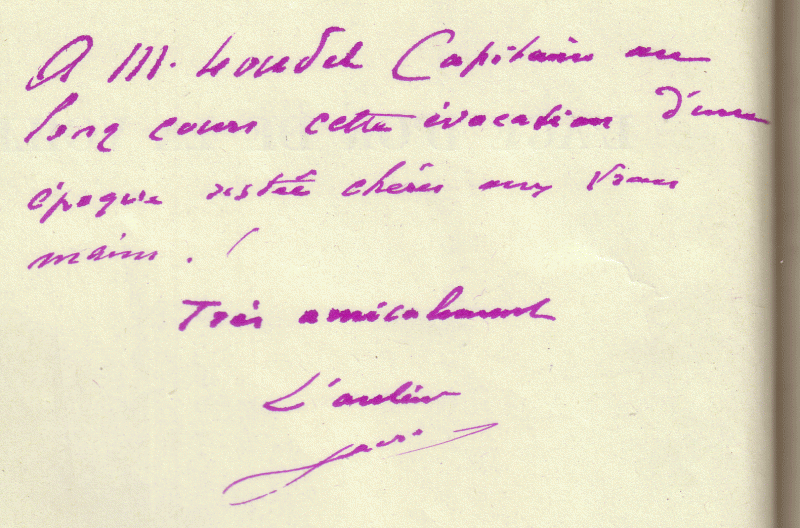 A M. Lourdel Capitaine au
long cours cette évocation d'une
époque restée chère aux vrais
marins . !
Très amicalement
L'auteur